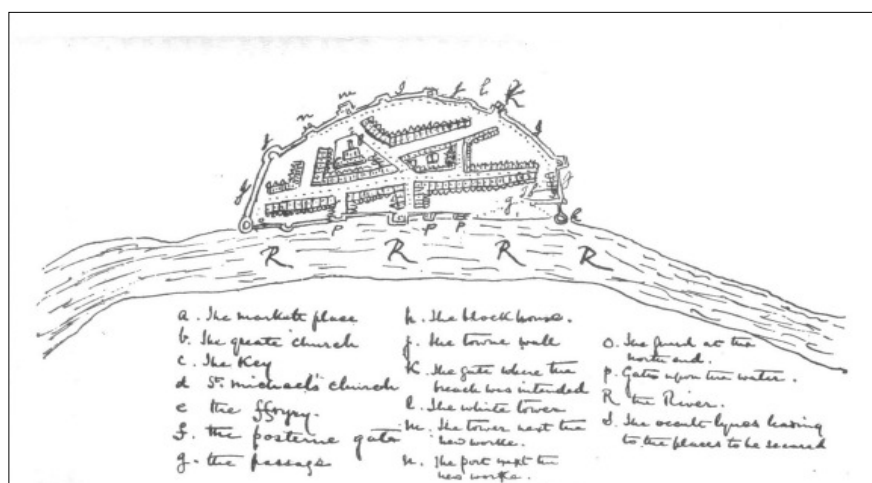 R R R R
a. The markett place
b. The greate church
c. The Key
d St. michael's church
e the ffryry.
f. The posterne gate
g. the passage
h. The block house.
j. The towne wall
K. The gate where the
breach was intended
l. The white tower
m. The tower next the
new worke.
n. The port next the
new worke.
O. The guard at the
north end.
p. Gates upon the water.
R the River.
The occult lynes leading
to the places to be secured